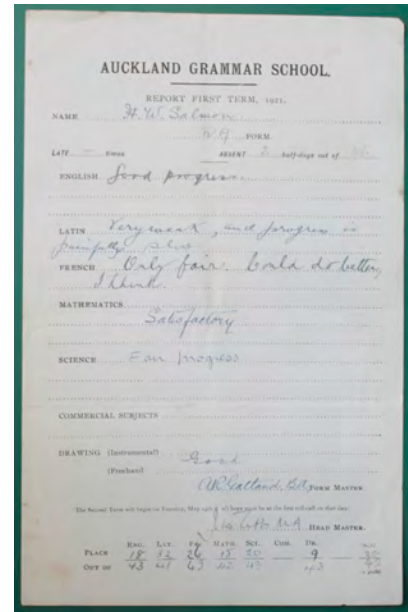 AUCKLAND GRAMMAR SCHOOL.
REPORT FIRST TERM, 1921.
NAME H. W. Salmon
FORM.
LATE — times ABSENT 2 half-days out of
ENGLISH Good progress.
LATIN Very weak, and progress is
painfully slow
FRENCH Only fair. Could do better,
I think.
MATHEMATICS
Satisfactory
SCIENCE Fair progress
COMMERCIAL SUBJECTS
DRAWING (Instrumental)
Good
(Freehand)
B.A. FORM MASTER.
The Second Term will begin on Tuesday, May
HEAD MASTER.
ENG. LAT. FR. MATH. SCI. COM. DR.
PLACE 18 32 26 18 20 9
OUT OF 43 41 43 42 43 43